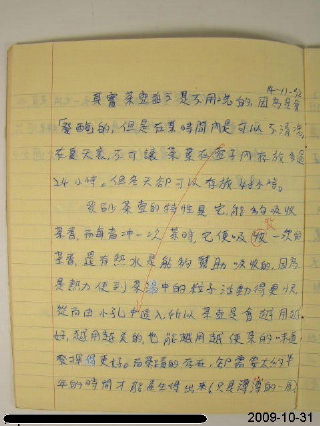 其實茶壺並不是不用洗的,因為是會
發酶的,但是在某時間內是可以不清洗,
在夏天裏,不可讓茶葉在壺子內存放多過
24小時,但冬天卻可以存放48小時。
茶壺的特性是它能夠吸收
茶香,而每當沖一次茶時,它便吸收一次的
茶香,最有熱水是能夠幫助吸收的,因為
是熱力使到茶湯中的粒子活動得更快
從而由小孔中進入,所以茶壺是會越用越
好,越用越久的也能越用越使茶的味道
發揮得更好。而茶漬的存在,卻需要大約半
年的時間才能產生得出來(只是薄薄的一層
2009-10-31